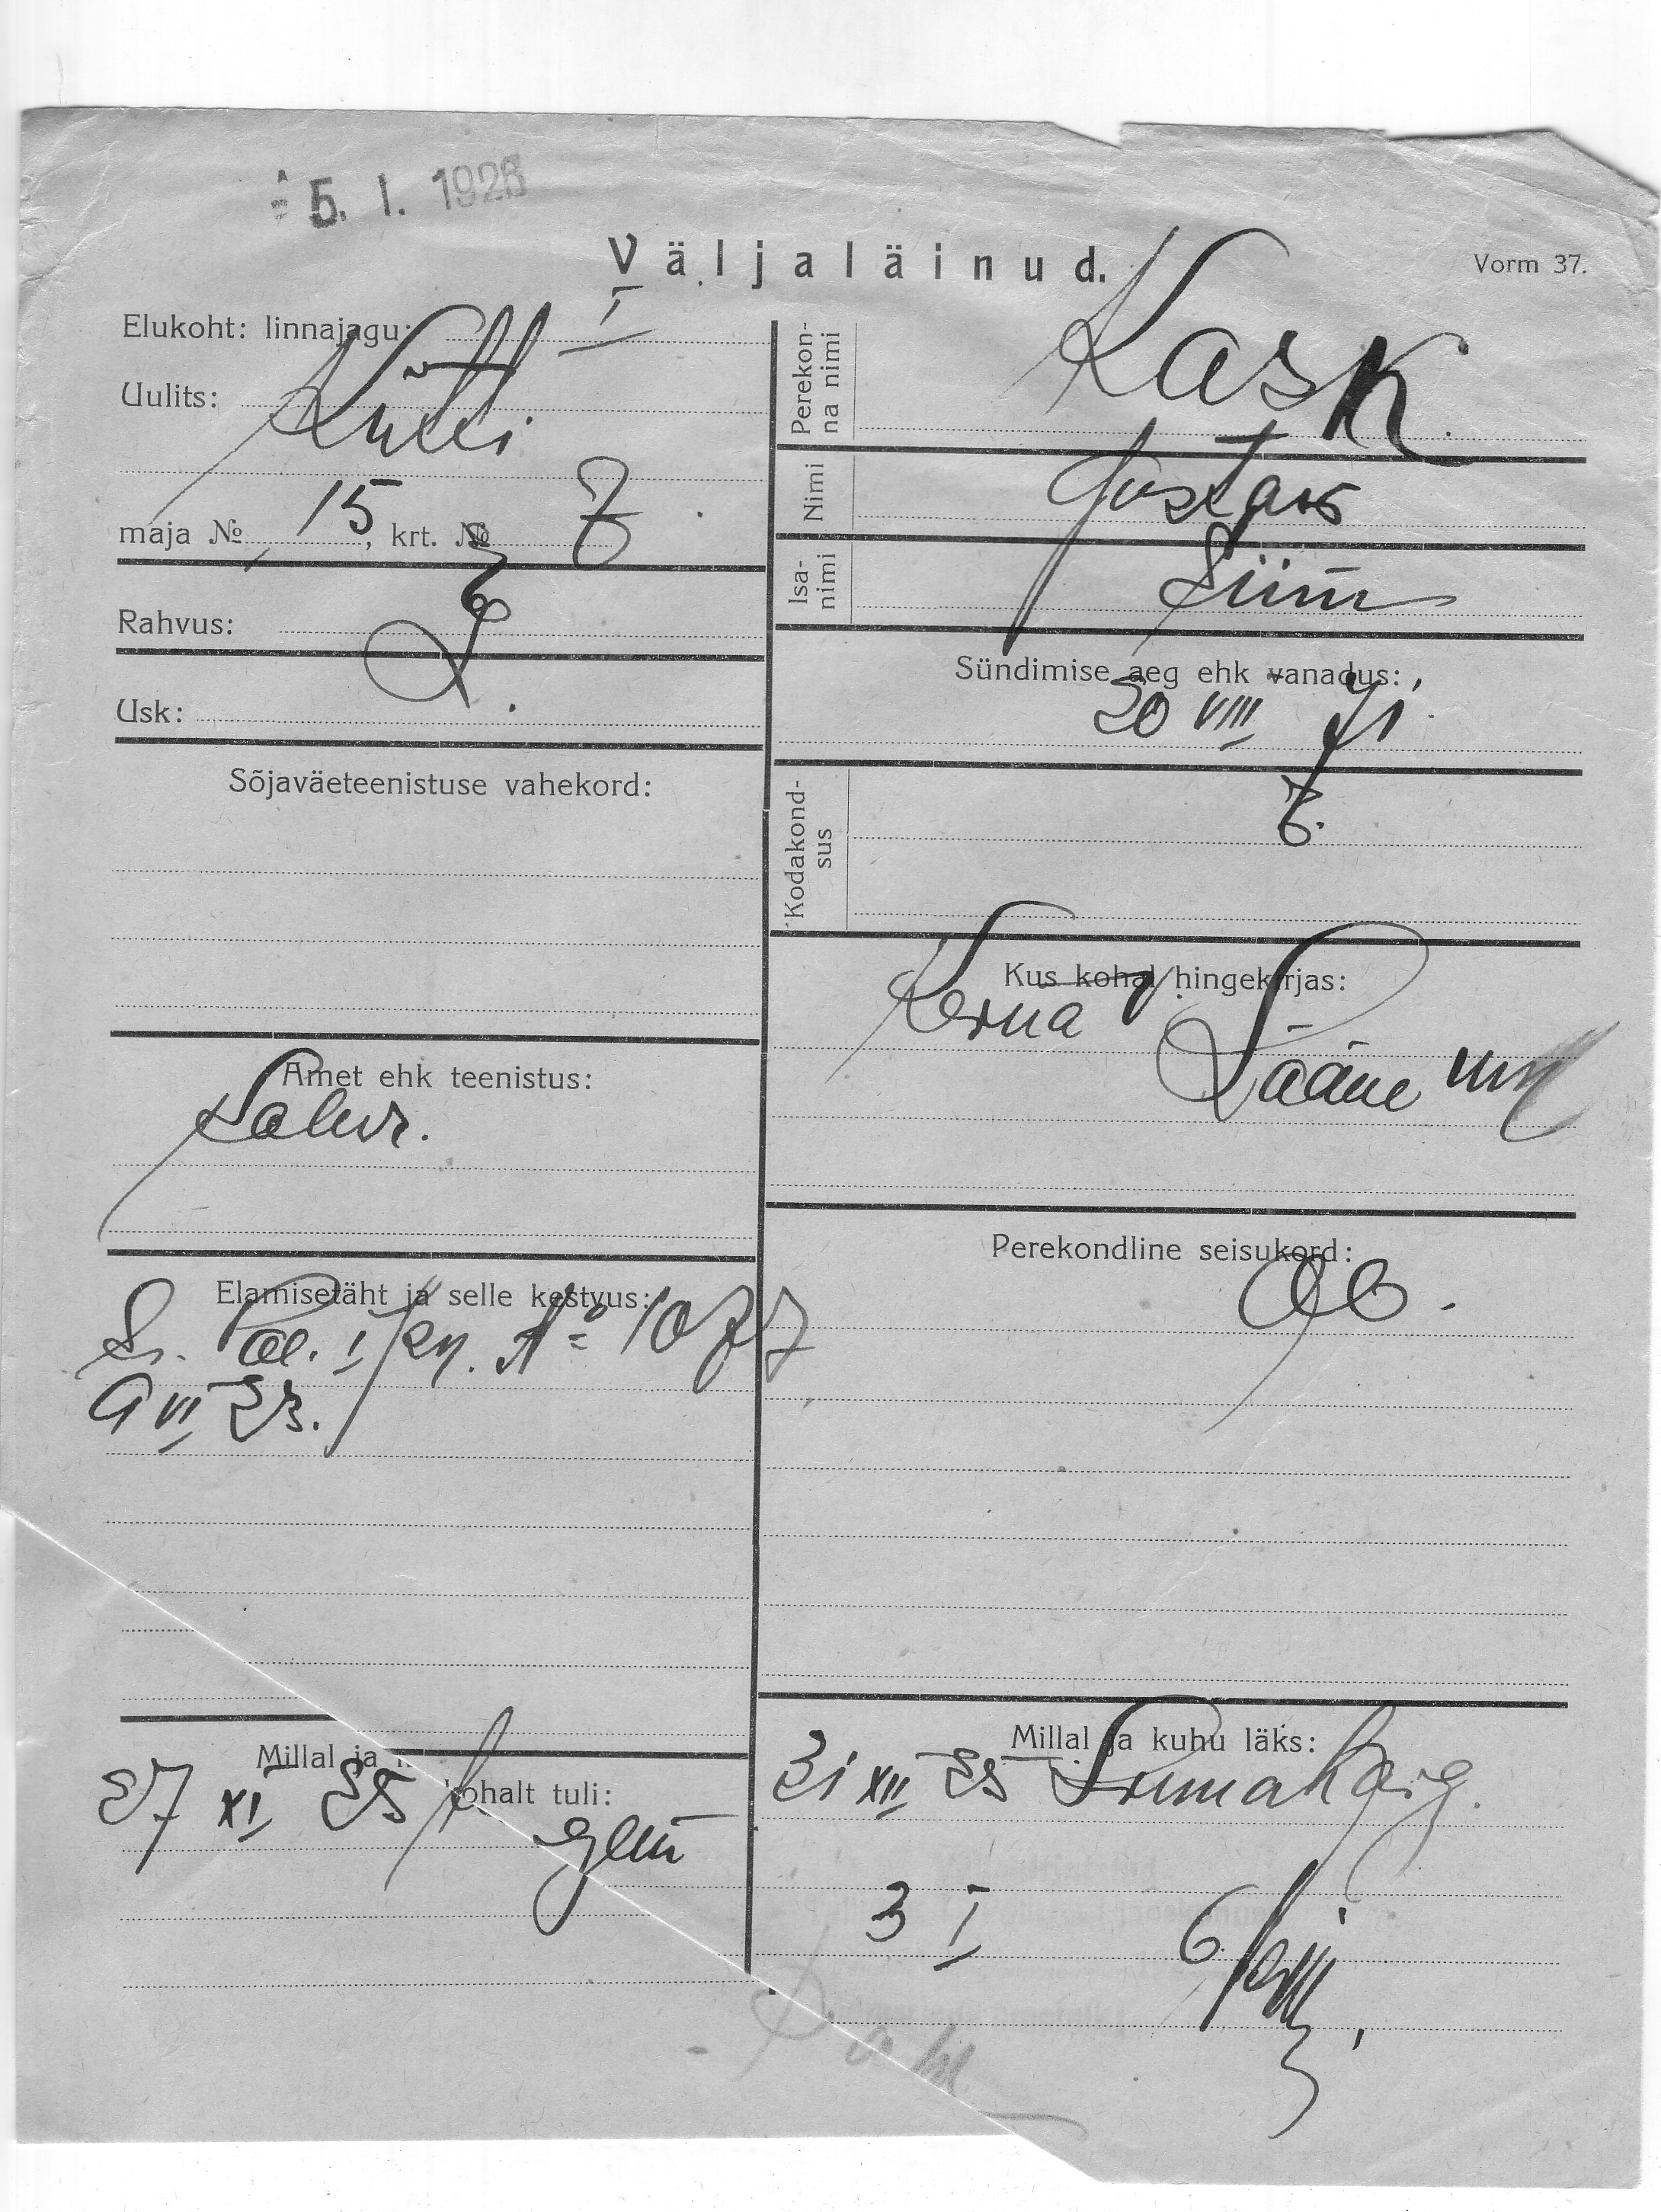 5. I. 1926
Väljaläinud.
Vorm 37.
Elukoht: linnajagu: I
Uulits: Kütti
maja № 15, krt. № 7
Rahvus: E
Usk: L.
Sõjaväeteenistuse vahekord:
Amet ehk teenistus:
Elamisetäht ja selle kestvus:
I № 1077
9 VI 23.
Millal ja kohalt tuli:
27 XI 25
Perekonna nimi Kask
Nimi Gustav
Isanimi Siim
Sündimise aeg ehk vanadus:
20 VIII
Kodakondsus E.
Kus kohal hingekirjas:
Lääne
Perekondline seisukord:
Ab.
Millal ja kuhu läks:
31 XII 25
3 I 6